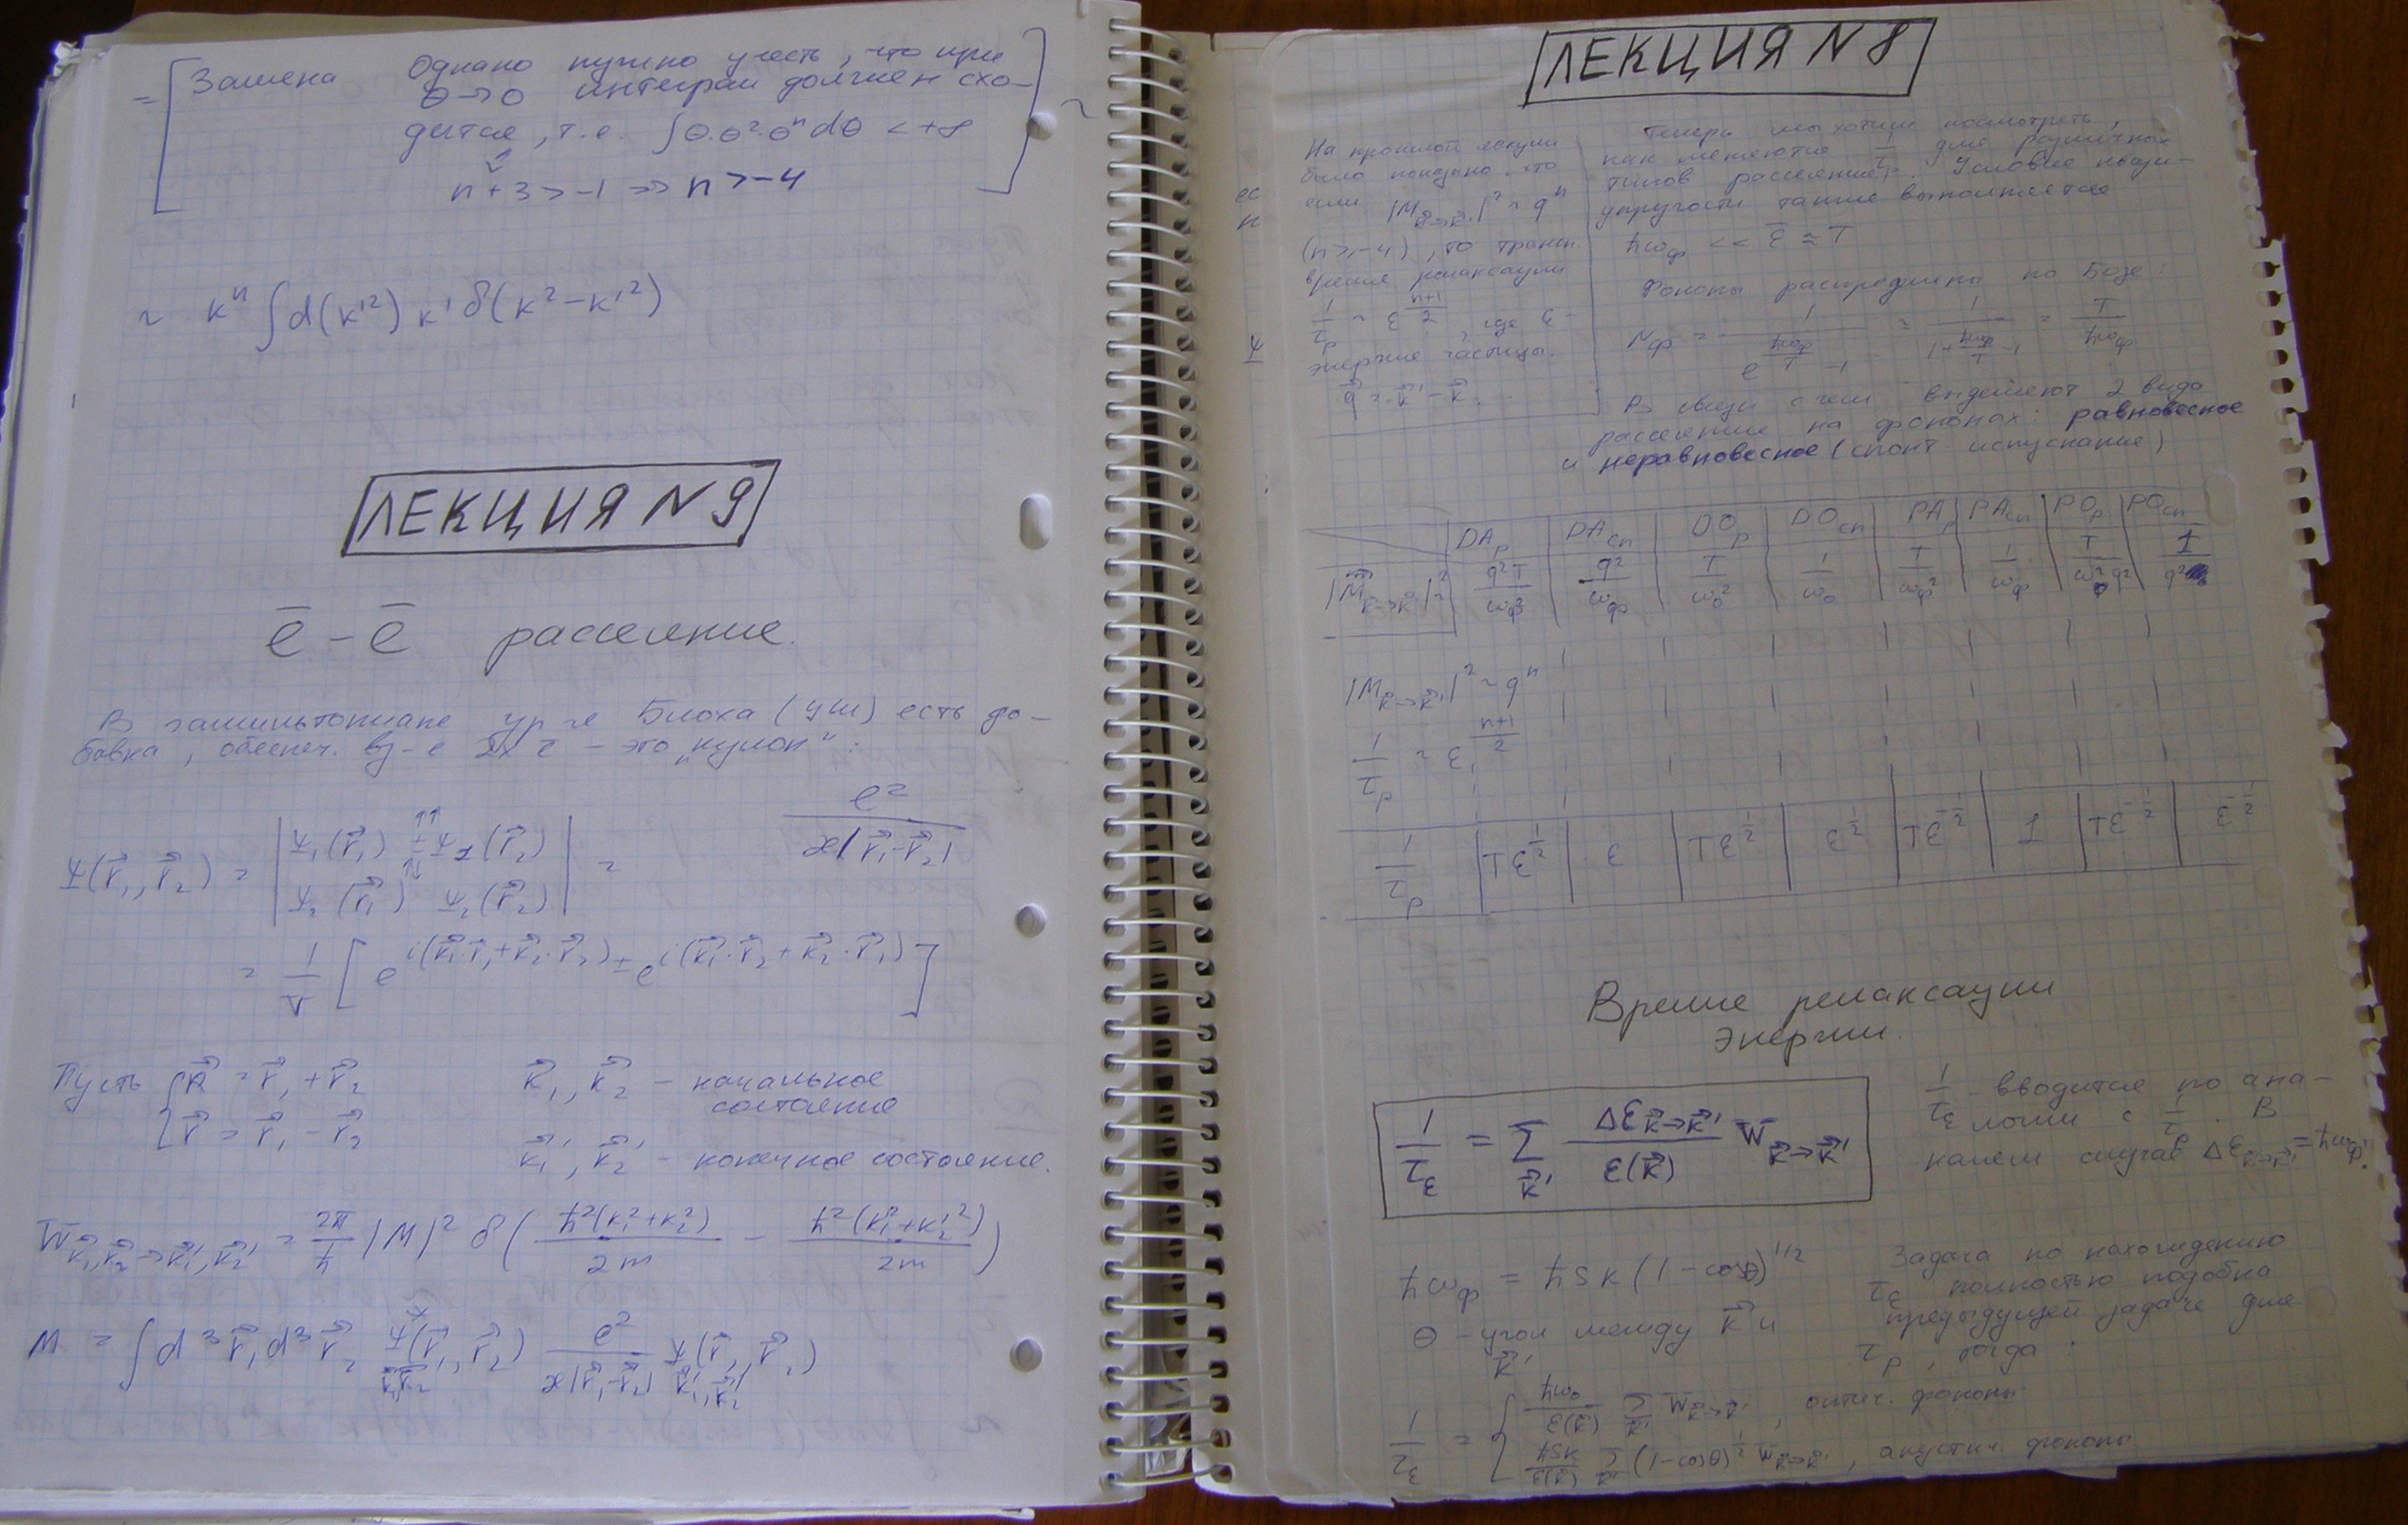 = [ Замена Однако нужно учесть, что при
θ→0 интеграл должен схо-
дится, т.е. ∫θ·θ²·θⁿdθ < +∞
n+3 > -1 => n > -4
~ kⁿ ∫d(k'²) k' δ(k²-k'²)
ЛЕКЦИЯ N9
e̅ - e̅ рассеяние.
В гамильтониане ур-я Блоха (УШ) есть до-
бавка, обеспеч. вз-е 2х e̅ - это "кулон":
e²/(ϰ|r⃗₁-r⃗₂|)
Ψ(r⃗₁, r⃗₂) = | Ψ₁(r⃗₁) ±Ψ₁(r⃗₂) | =
Ψ₂(r⃗₁) Ψ₂(r⃗₂)
= 1/V [ e^{i(k⃗₁·r⃗₁+k⃗₂·r⃗₂)} ± e^{i(k⃗₁·r⃗₂+k⃗₂·r⃗₁)} ]
Пусть { R⃗ = r⃗₁ + r⃗₂
r⃗ = r⃗₁ - r⃗₂
k⃗₁, k⃗₂ - начальное
состояние
k⃗₁', k⃗₂' - конечное состояние.
W_{k⃗₁,k⃗₂→k⃗₁',k⃗₂'} = 2π/ħ |M|² δ( ħ²(k₁²+k₂²)/2m - ħ²(k₁'²+k₂'²)/2m )
M = ∫d³r⃗₁d³r⃗₂ Ψ*_{k⃗₁k⃗₂}(r⃗₁, r⃗₂) e²/(ϰ|r⃗₁-r⃗₂|) Ψ_{k⃗₁',k⃗₂'}(r⃗₁, r⃗₂)
ЛЕКЦИЯ N8
На прошлой лекции
было показано, что
если |M_{k⃗→k⃗'}|² ~ qⁿ
(n>-4), то трансп.
время релаксации
1/τ_p ~ ε^{(n+1)/2}, где ε-
энергия частицы.
q⃗ = k⃗' - k⃗.
Теперь мы хотим посмотреть,
как меняется 1/τ для различных
типов рассеяния. Условие квази-
упругости также выполняется
ħω_ф << ε̅ ≈ T
Фононы распределены по Бозе:
N_ф = 1/(e^{ħω_ф/T} - 1) ≈ 1/(1+ħω_ф/T-1) = T/ħω_ф
В связи с чем выделяют 2 вида
рассеяние на фононах: равновесное
и неравновесное (спонт испускание)
DA_р | DA_сп | DO_р | DO_сп | PA_р | PA_сп | PO_р | PO_сп
|M_{k⃗→k⃗'}|² ~ | q²T/ω_ф² | q²/ω_ф | T/ω₀² | 1/ω₀ | T/ω_ф² | 1/ω_ф | T/ω₀²q² | 1/q²
|M_{k⃗→k⃗'}|² ~ qⁿ
1/τ_p ~ ε^{(n+1)/2}
1/τ_p | Tε^{1/2} | ε | Tε^{1/2} | ε^{1/2} | Tε^{-1/2} | 1 | Tε^{-1/2} | ε^{-1/2}
Время релаксации
энергии.
1/τ_ε = Σ_{k⃗'} Δε_{k⃗→k⃗'}/ε(k⃗) W_{k⃗→k⃗'}
1/τ_ε вводится по ана-
логии с 1/τ_p. В
нашем случае Δε_{k⃗→k⃗'} = ħω_ф.
ħω_ф = ħsk(1-cosθ)^{1/2}
θ - угол между k⃗ и
k⃗'
Задача по нахождению
τ_ε полностью подобна
предыдущей задаче для
τ_p, тогда:
1/τ_ε = { ħω₀/ε(k⃗) Σ_{k⃗'} W_{k⃗→k⃗'}, оптич. фононы
ħsk/ε(k⃗) Σ_{k⃗'} (1-cosθ)^{1/2} W_{k⃗→k⃗'}, акустич. фононы